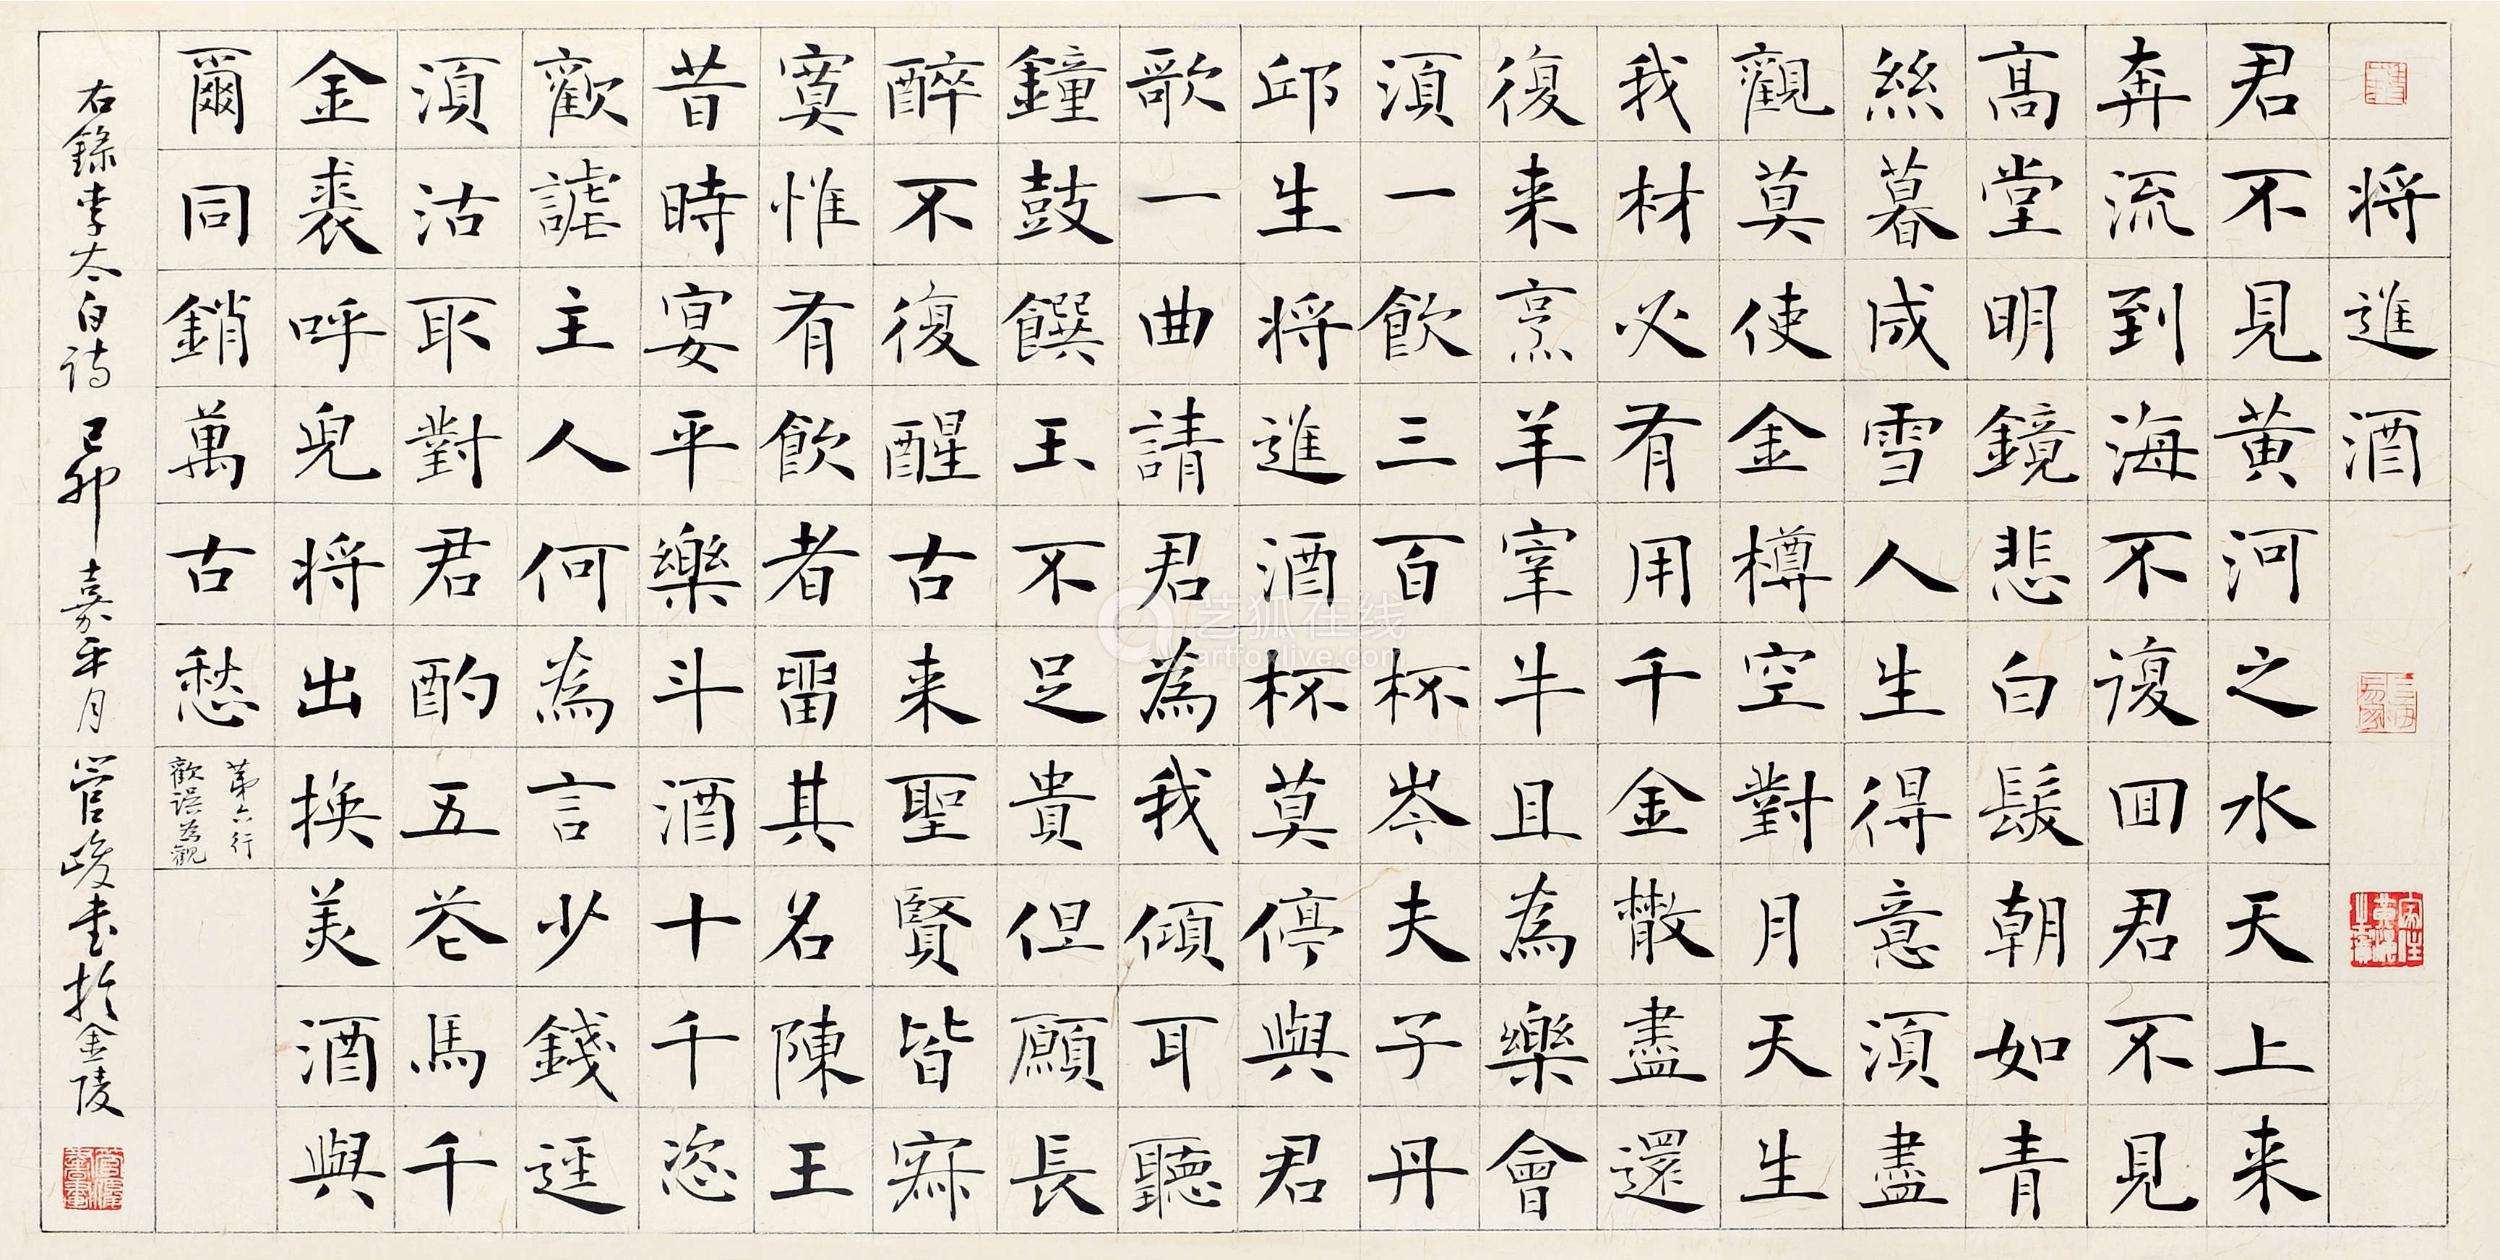 将進酒
君不見黄河之水天上来
奔流到海不復回君不見
高堂明鏡悲白髮朝如青
絲暮成雪人生得意須盡
觀莫使金樽空對月天生
我材必有用千金散盡還
復来烹羊宰牛且為樂會
須一飲三百杯岑夫子丹
邱生将進酒杯莫停與君
歌一曲請君為我傾耳聽
鐘鼓饌玉不足貴但願長
醉不復醒古来聖賢皆寂
寞惟有飲者留其名陳王
昔時宴平樂斗酒十千恣
歡謔主人何為言少錢逕
須沽取對君酌五花馬千
金裘呼兒将出換美酒與
爾同銷萬古愁
第六行
歡误為觀
右錄李太白诗 己卯嘉平月 管峻书於金陵
艺狐在线
artfoxlive.com